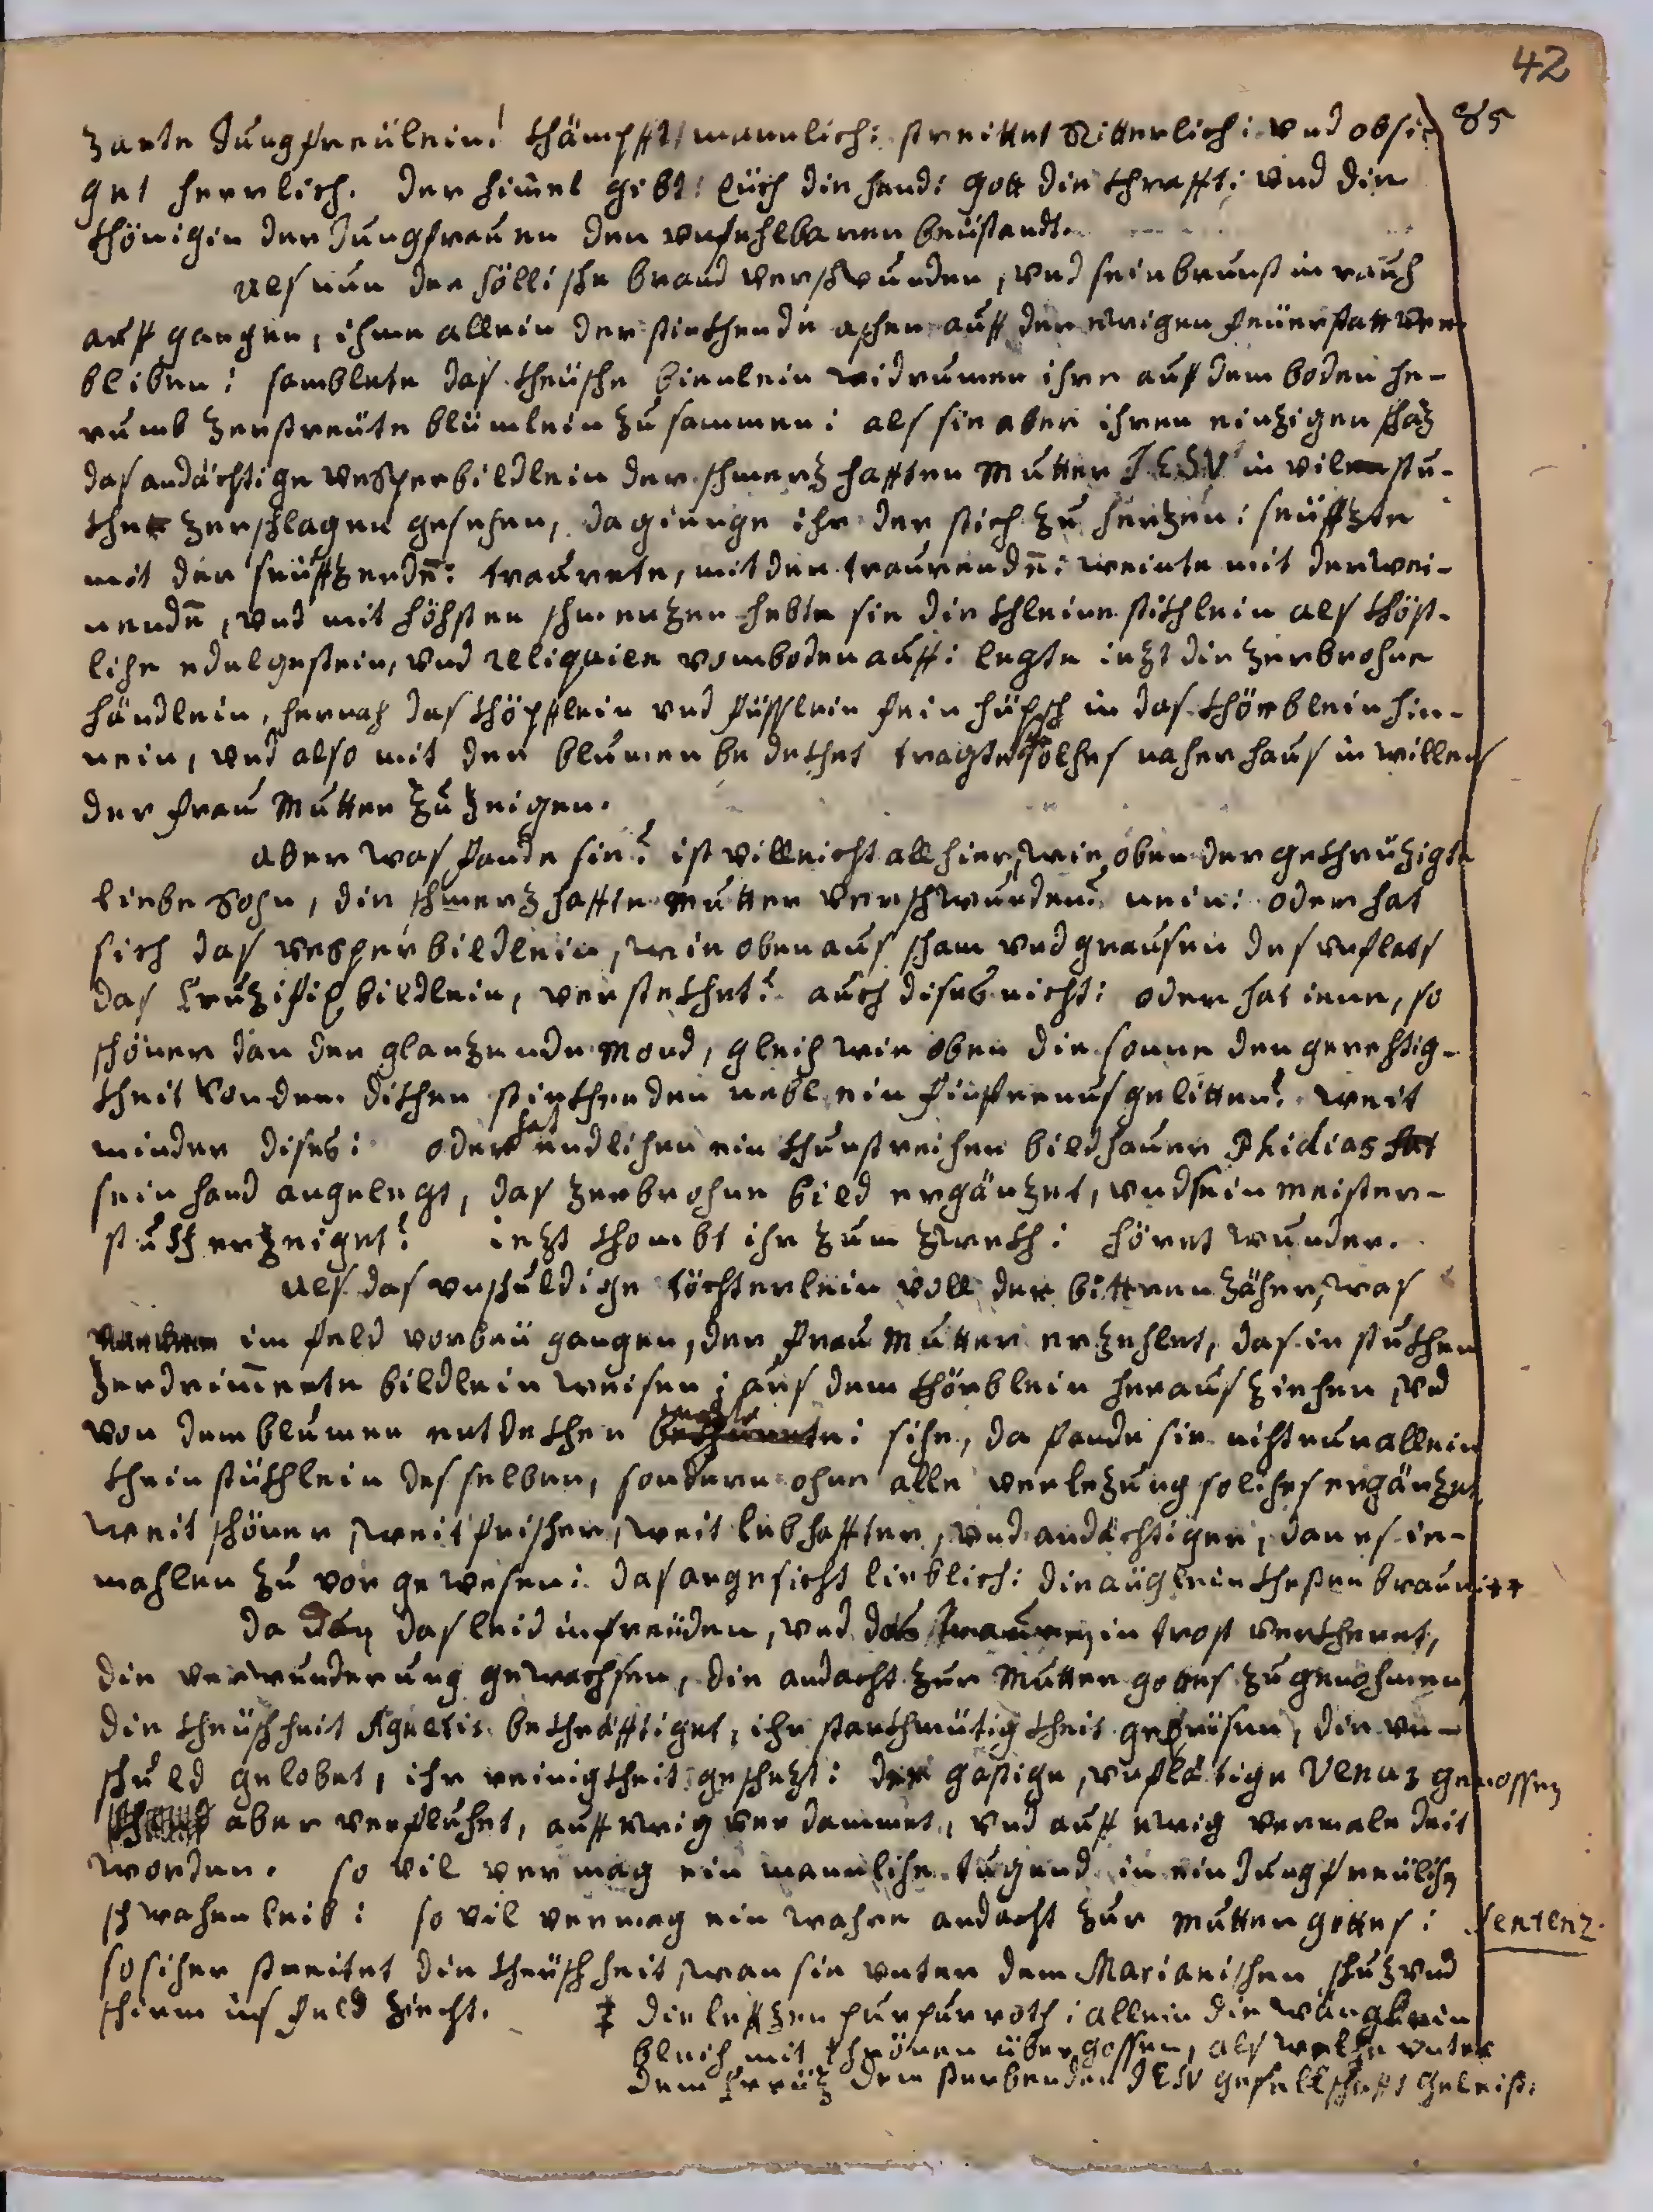 42
85
zarte Jungfreülein! khämpfft mannlich: streittet Ritterlich: vnd obsi-
get herrlich. der himel gibt Eüch die hand: Gott die khrafft: vnd die
khönigin der Jungfrauen den vnfehlbaren beüstandt.
Als nun der höllische brand verschwunden, vnd sein brunst in rauch
auff gangen, ihme allein der stinkhende aschen auff der ewigen feüerstatt ver-
bliben: samblete das kheüsche bienlein widerumen ihre auff dem boden he-
rumb zerstreüte blümlein zusammen: als sie aber ihren einzigen schaz
das andächtige Vesperbildlein der schmerzhafften Mutter JESV in vilen stu-
kher zerschlagen gesehen, da gienge ihr der stich zu herzen: seüffzte
mit der seüffzenden: traurete, mit der traurenden: weinte mit der wei-
nenden, vnd mit höchsten schmerzen hebte sie die khleine stikhlein als khöst-
liche edelgestein, vnd Reliquien vom boden auff: legte iezt die zerbrochne
händlein, hernach das khöpfflein vnd füsslein fein hüpsch in das khörblein hin-
nein, vnd also mit den blumen bedekhet tragte solches nacher haus in willens
der frau Mutter zu zeigen.
Aber was fande sie? ist villeicht allhier, wie oben der gekhreüzigte
liebe Sohn, die schmerzhaffte Mutter verschwunden? nein: oder hat
sich das Vesperbildlein, wie oben aus scham vnd grausen des vnflats
das Cruzifix bildlein, verstekhet? auch dises nicht: oder hat iene, so
schöner dan der glanzende Mond, gleich wie oben die sonne der gerechtig-
kheit von dem dikhen stinkhenden nebl ein finsternus gelitten? weit
minder dises: oder hat endlichen ein khunstreicher bildhauer Phidias hat
sein hand angelegt, das zerbrochne bild ergänzet, vnd sein meister-
stukh erzeiget? iezt khombt ihr zum zwekh: höret wunder.
Als das vnschuldige töchterlein voll der bitteren zäher, was
im feld vorbeü gangen, der frau Mutter erzehlet, das in stukhen
zerdrimerte bildlein weisen: aus dem khörblein heraus ziehen vnd
von dem blumen entdekhen wolte: sihe, da fande sie nicht nur allein
khein stükhlein desselben, sondern ohne alle verlezung solches ergänzet,
weit schöner, weit frischer, weit lebhaffter, vnd andächtiger, dan es ie-
mahlen zuvor gewesen: das angesicht lieblich: die äuglein khesten braun: ‡
Da dan das leid in freüden, vnd das trauren in trost verkheret,
die verwunderung gewachsen, die andacht zur Mutter gottes zugenohmen
die kheüschheit Agnetis bekhräfftiget, ihr starkhmütigkheit gepriesen, die vn-
schuld gelobet, ihr reinigkheit geschezt: der gastige, vnflätige Venus genossen
aber verfluchet, auff ewig verdammet, vnd auff ewig vermaledeit
worden. so vil vermag ein mannliche tugend in ein Jungfreülichen
schwachen leib: so vil vermag ein wahre andacht zur Mutter gottes: Sentenz.
so sicher streitet die kheüschheit, wan sie vnter dem Marianischen schuz vnd
schirm ins feld ziecht. ‡ die leffzen purpurroth: allein die wänglein
bleich mit thränen übergossen, als welche vnter
dem Creüz dem sterbenden JESV gesellschafft geleist: